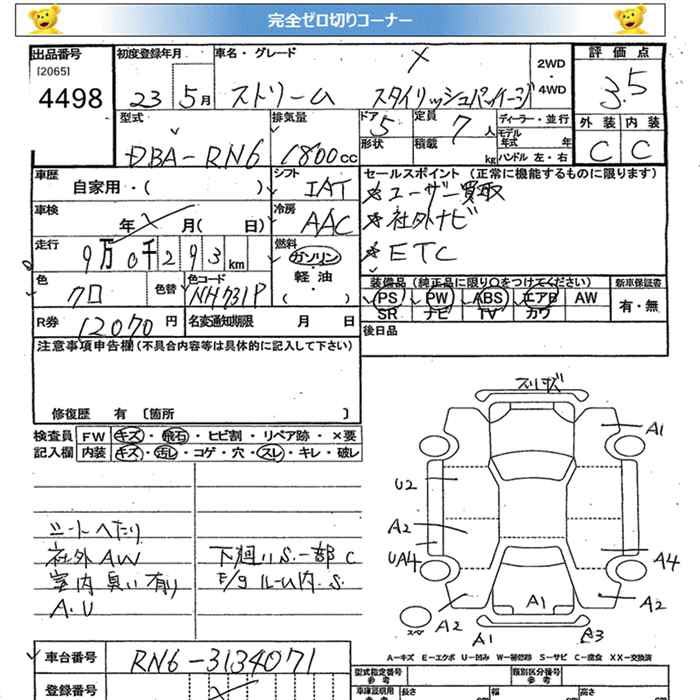 完全ゼロ切りコーナー
出品番号 初度登録年月 車名・グレード 評価点
[2065] 2WD・4WD
4498 23 5月 ストリーム スタイリッシュパッケージ 3.5
外装 内装
C C
型式 排気量 ドア 5 定員 7人 ディーラー・並行
DBA-RN6 1800cc 形状 積載 kg モデル年式 年
ハンドル 左・右
車歴 シフト セールスポイント (正常に機能するものに限ります)
自家用・( ) IAT ユーザー買取
車検 冷房 社外ナビ
年 月( 日) AAC ETC
走行 燃料
9万0千293km ガソリン・軽油
色 色替 色コード 装備品 (純正品に限り○をつけてください) 新車保証書
クロ NH731P PS PW ABS エアB AW 有・無
SR ナビ TV カワ
R券 12070円 名変通知期限 月 日 後日品
注意事項申告欄(不具合内容等は具体的に記入して下さい)
修復歴 有 〔箇所 〕
検査員 FW キズ・飛石・ヒビ割・リペア跡・×要
記入欄 内装 キズ・汚レ・コゲ・穴・スレ・キレ・破レ
シートへたり
社外AW 下廻りS.一部C
室内臭い有り E/gルーム内.S.
A.U
スリキズ
A1
U2
A2
UA4 A4
A2 A1 A2
スペア A1 B3
A-キズ E-エクボ U-凹み W-補修跡 S-サビ C-腐食 XX-交換済
車台番号 RN6-3134071
登録番号
型式指定番号 参考 類別区分番号 参考
車庫証明用 参考 長さ 幅 高さ